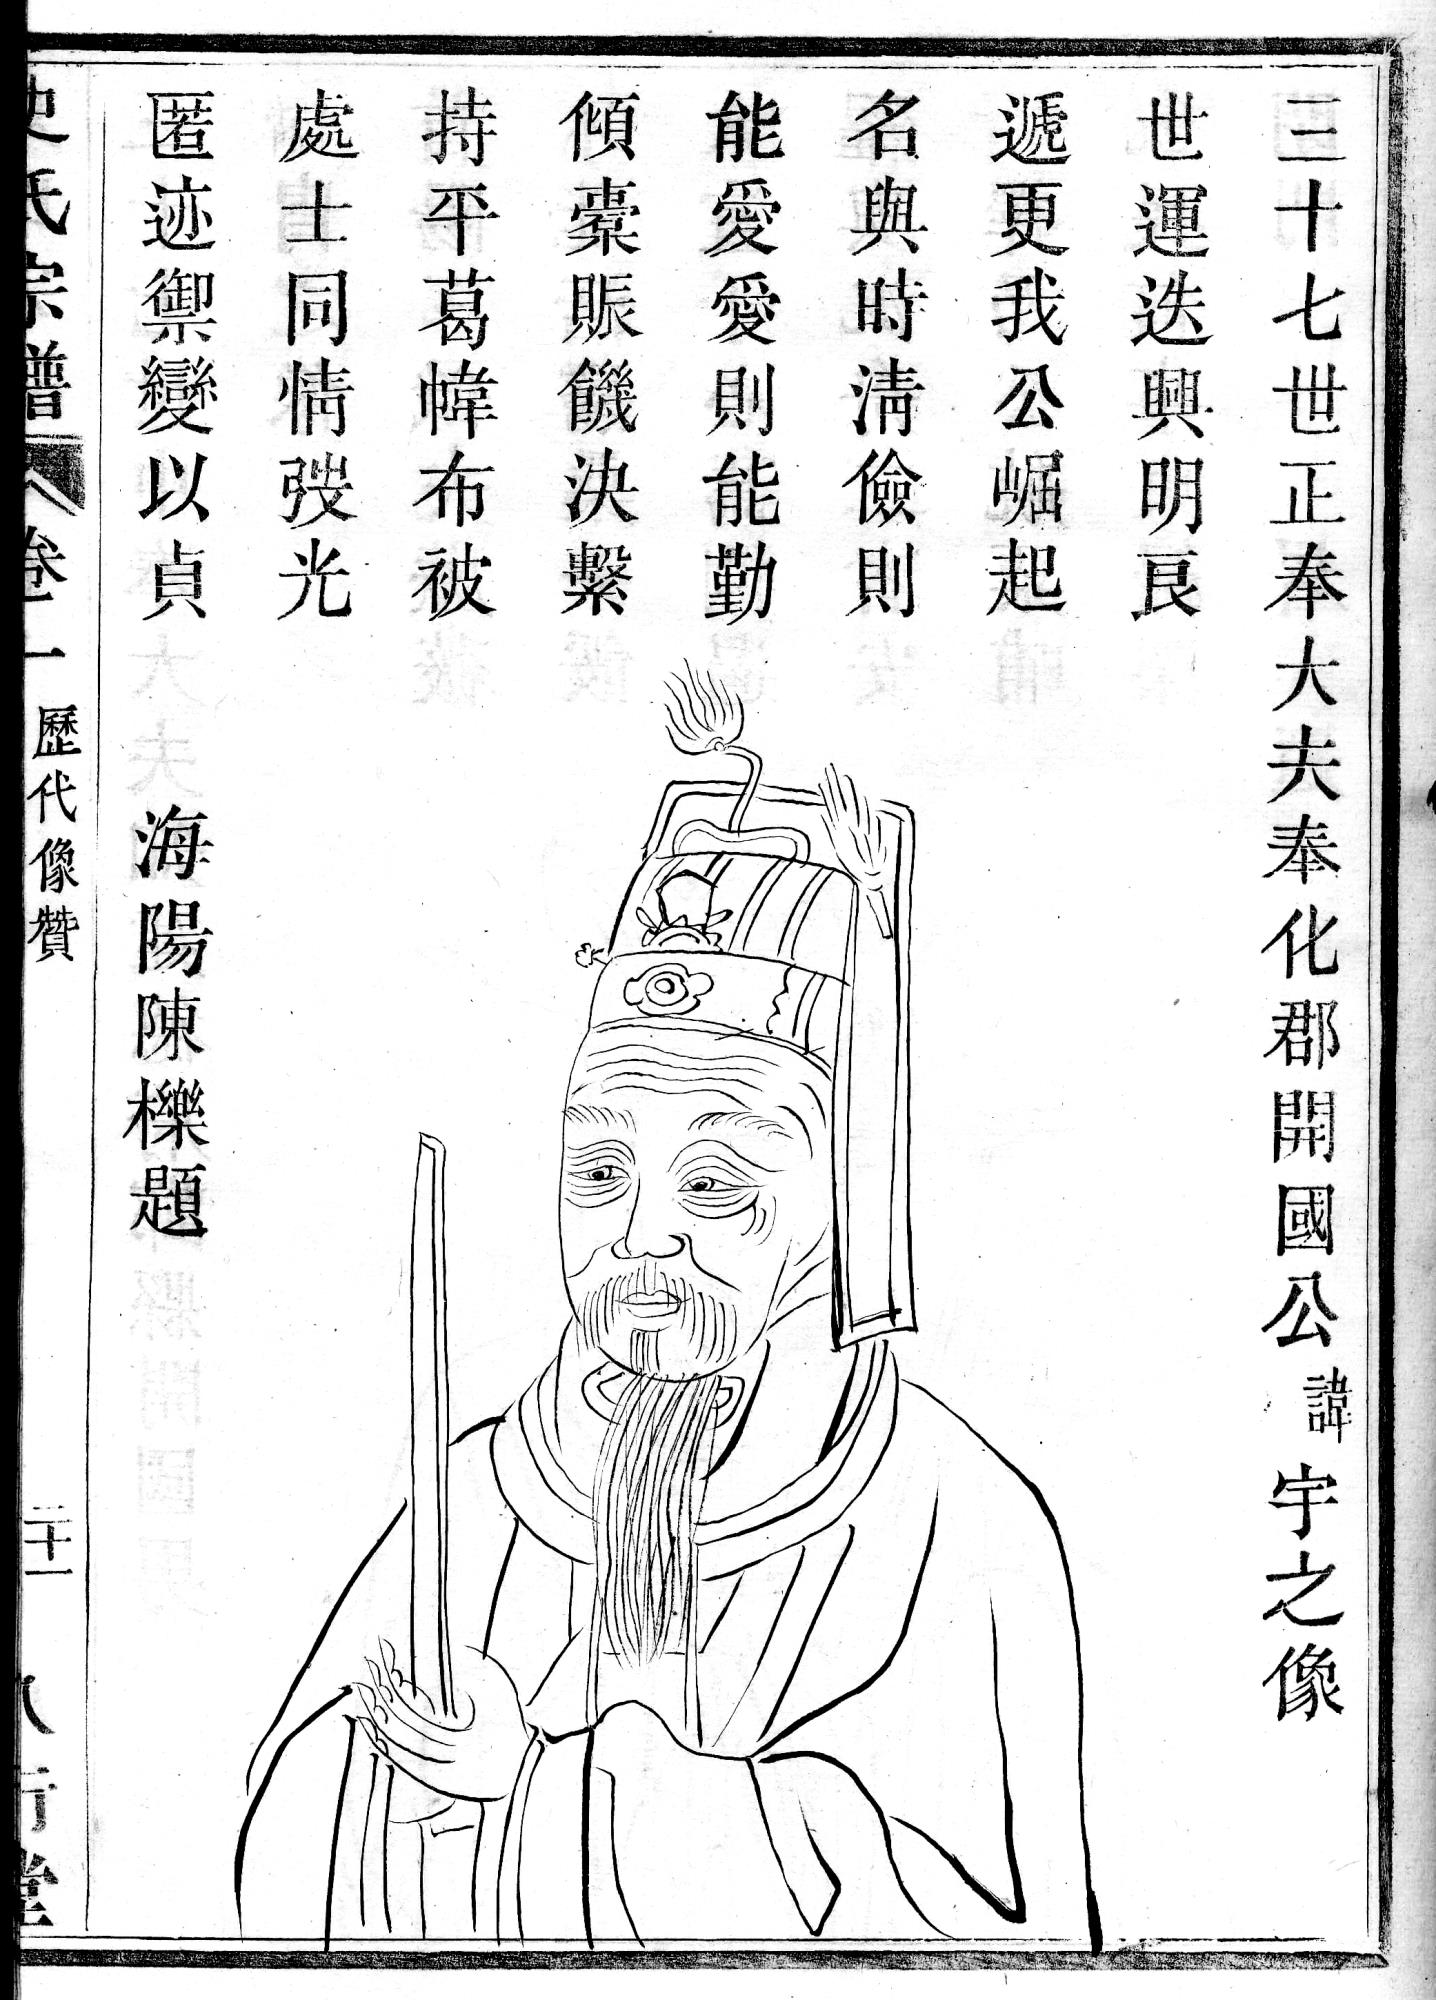 三十七世正奉大夫奉化郡開國公諱宇之像
世運迭興明良
遞更我公崛起
名與時清儉則
能愛愛則能勤
傾橐賑饑決繫
持平葛幃布被
處士同情弢光
匿迹禦變以貞
海陽陳櫟題
史氏宗譜
卷一
歷代像贊
二十一
八行堂